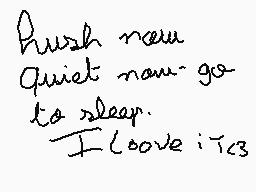 hush now
quiet now- go
to sleep.
I Loove iT<3